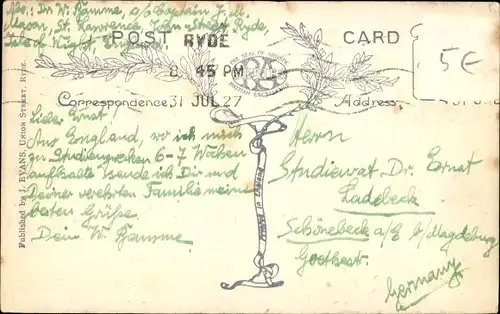 Abs.: Dr. W. Hamme, c/o Captain J. M.
St. Lawrence, John-Street, Ryde,
Isle of Wight, England.
POST CARD
RYDE
8 45 PM
31 JUL 27
THE SEAL OF ARTISTIC
BRITISH EXCELLENCE
5€
Correspondence
Address
Published by J. EVANS, UNION STREET, RYDE.
PRINTED IN ENGLAND
Lieber Ernst!
Aus England, wo ich mich
zu Studienzwecken 6-7 Wochen
aufhalte sende ich Dir und
Deiner verehrten Familie meine
besten Grüße.
Dein W. Hamme.
Herrn
Studienrat Dr. Ernst
Ladebeck
Schönebeck a/E b/Magdeburg
Goethestr.
Germany